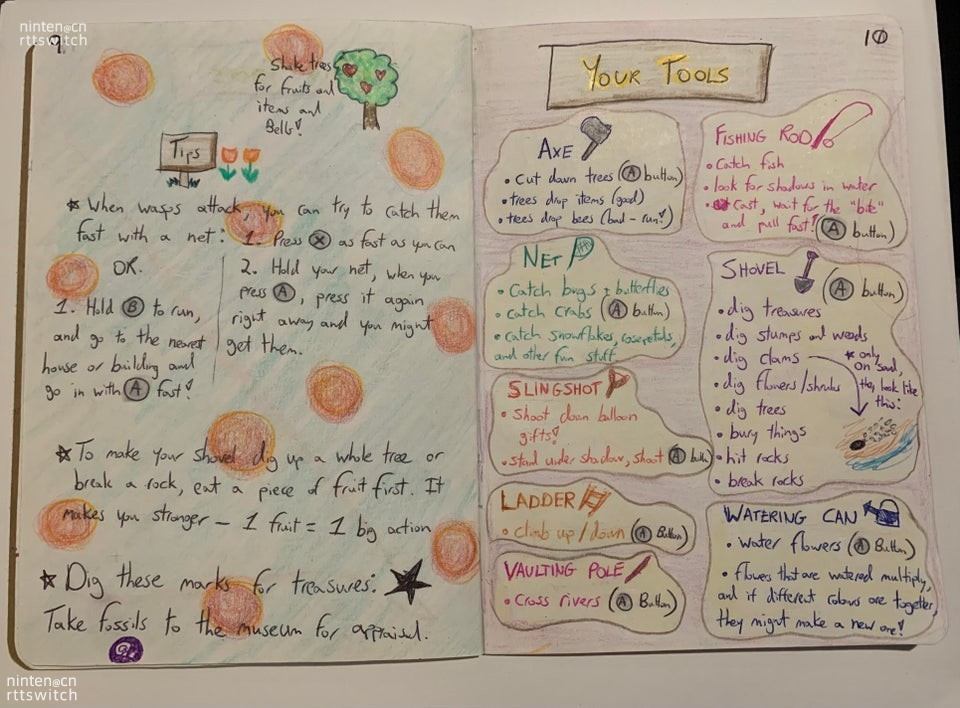 ninten@cn
rttswitch
9.
Shake trees
for fruits and
items and
Bells!
Tips
* When wasps attack, you can try to catch them
fast with a net:
1. Press X as fast as you can
OR.
1. Hold B to run,
and go to the nearest
house or building and
go in with A fast!
2. Hold your net, when you
press A, press it again
right away and you might
get them.
* To make your shovel dig up a whole tree or
break a rock, eat a piece of fruit first. It
makes you stronger - 1 fruit = 1 big action
* Dig these marks for treasures:
Take fossils to the museum for appraisal.
10
YOUR TOOLS
AXE
• cut down trees (A button)
• trees drop items (good)
• trees drop bees (bad - run!)
NET
• Catch bugs + butterflies
• catch crabs (A button)
• catch snowflakes, rose petals,
and other fun stuff
SLINGSHOT
• Shoot down balloon
gifts!
• stand under shadow, shoot (A button)
LADDER
• climb up/down (A Button)
VAULTING POLE
• Cross rivers (A Button)
FISHING ROD
• Catch fish
• look for shadows in water
• Cast, wait for the "bite"
and pull fast! (A button)
SHOVEL
(A button)
• dig treasures
• dig stumps and weeds
• dig clams
* only
on sand,
they look like
this:
• dig flowers/shrubs
• dig trees
• bury things
• hit rocks
• break rocks
WATERING CAN
• Water flowers (A Button)
• flowers that are watered multiply,
and if different colours are together,
they might make a new one!
ninten@cn
rttswitch